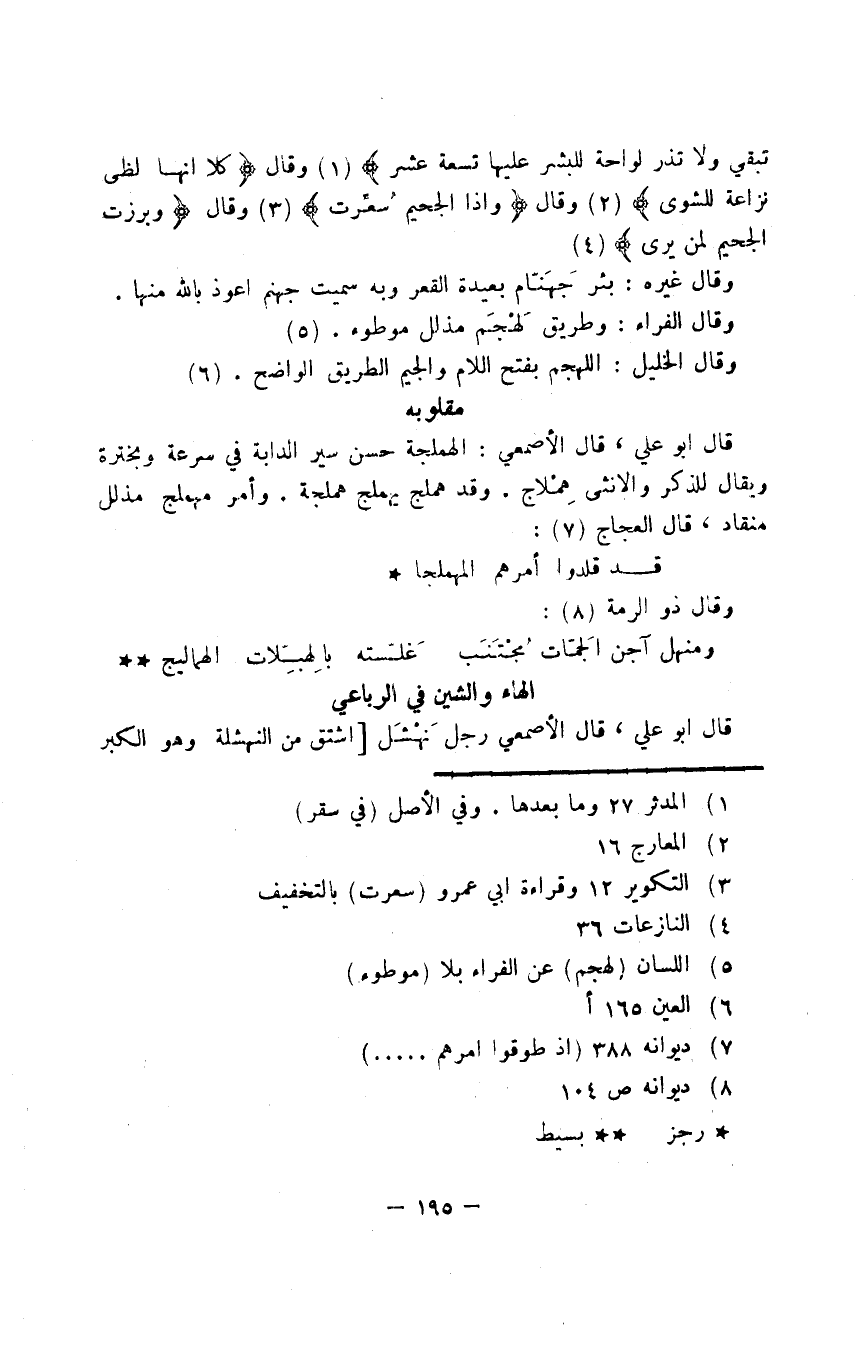 تبقي ولا تذر لواحة للبشر عليها تسعة عشر ﴾ (١) وقال ﴿ كلا انهـا لظى
نزاعة للشوى ﴾ (٢) وقال ﴿ واذا الجحيم سُعّرت ﴾ (٣) وقال ﴿ وبرزت
الجحيم لمن يرى ﴾ (٤)
وقال غيره : بئر جَهَنّام بعيدة القعر وبه سميت جهنم اعوذ بالله منها .
وقال الفراء : وطريق لَهْجَم مذلل موطوء . (٥)
وقال الخليل : اللهجم بفتح اللام والجيم الطريق الواضح . (٦)
مقلوبه
قال ابو علي ، قال الأصمعي : الهملجة حسن سير الدابة في سرعة وبخترة
ويقال للذكر والانثى هِمْلاج . وقد هملج يهملج هملجة . وأمر مهملج مذلل
منقاد ، قال العجاج (٧) :
قـــد قلدوا أمرهم المهملجا ★
وقال ذو الرمة (٨) :
ومنهل آجن الجَمّات مُجْتَنَب غَلّسته بالهِبِلّات الهماليج ★★
الهاء والشين في الرباعي
قال ابو علي ، قال الأصمعي رجل نَهْشَل [اشتق من النهشلة وهو الكبر
١) المدثر ٢٧ وما بعدها . وفي الأصل (في سقر)
٢) المعارج ١٦
٣) التكوير ١٢ وقراءة ابي عمرو (سعرت) بالتخفيف
٤) النازعات ٣٦
٥) اللسان (لهجم) عن الفراء بلا (موطوء)
٦) العين ١٦٥ أ
٧) ديوانه ٣٨٨ (اذ طوقوا امرهم .....)
٨) ديوانه ص ١٠٤
★ رجز ★★ بسيط
— ١٩٥ —